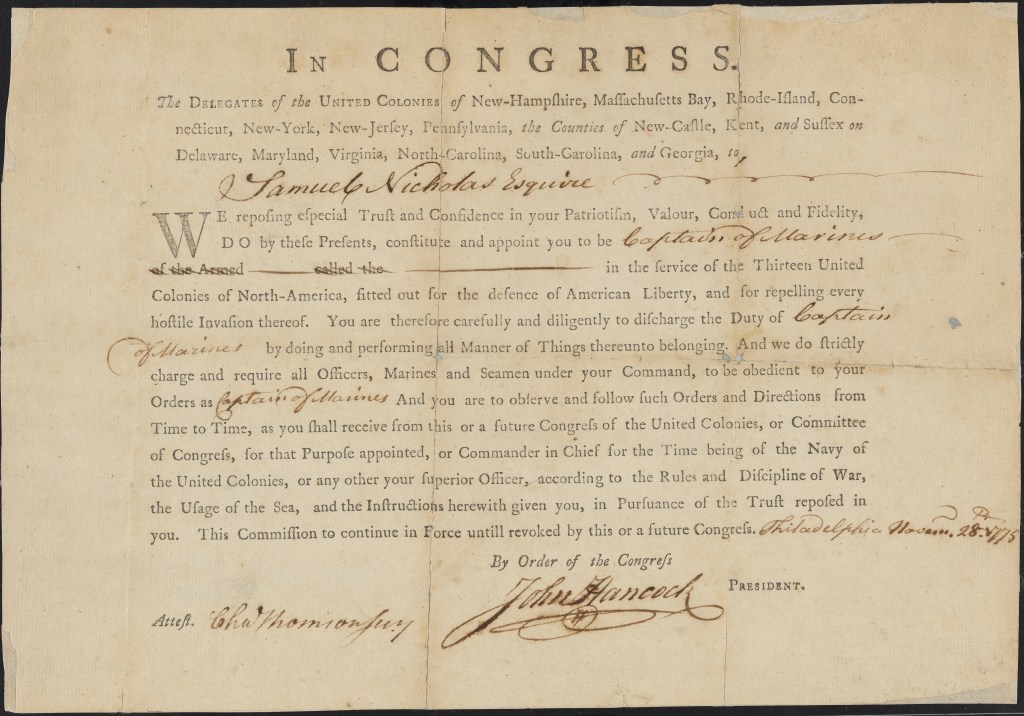 In CONGRESS.
The DELEGATES of the UNITED COLONIES of New-Hampſhire, Maſſachuſetts Bay, Rhode-Iſland, Con-
necticut, New-York, New-Jerſey, Pennſylvania, the Counties of New-Caſtle, Kent, and Suſſex on
Delaware, Maryland, Virginia, North-Carolina, South-Carolina, and Georgia, to,
Samuel Nicholas Esquire
WE repoſing eſpecial Truſt and Confidence in your Patriotiſm, Valour, Conduct and Fidelity,
DO by theſe Preſents, conſtitute and appoint you to be Captain of Marines
of the Armed called the in the ſervice of the Thirteen United
Colonies of North-America, fitted out for the defence of American Liberty, and for repelling every
hoſtile Invaſion thereof. You are therefore carefully and diligently to diſcharge the Duty of Captain
of Marines by doing and performing all Manner of Things thereunto belonging. And we do ſtrictly
charge and require all Officers, Marines and Seamen under your Command, to be obedient to your
Orders as Captain of Marines And you are to obſerve and follow ſuch Orders and Directions from
Time to Time, as you ſhall receive from this or a future Congreſs of the United Colonies, or Committee
of Congreſs, for that Purpoſe appointed, or Commander in Chief for the Time being of the Navy of
the United Colonies, or any other your ſuperior Officer, according to the Rules and Diſcipline of War,
the Uſage of the Sea, and the Inſtructions herewith given you, in Purſuance of the Truſt repoſed in
you. This Commiſſion to continue in Force untill revoked by this or a future Congreſs. Philadelphia Novem. 28th 1775
By Order of the Congreſs
John Hancock PRESIDENT.
Atteſt. Cha Thomson Secy